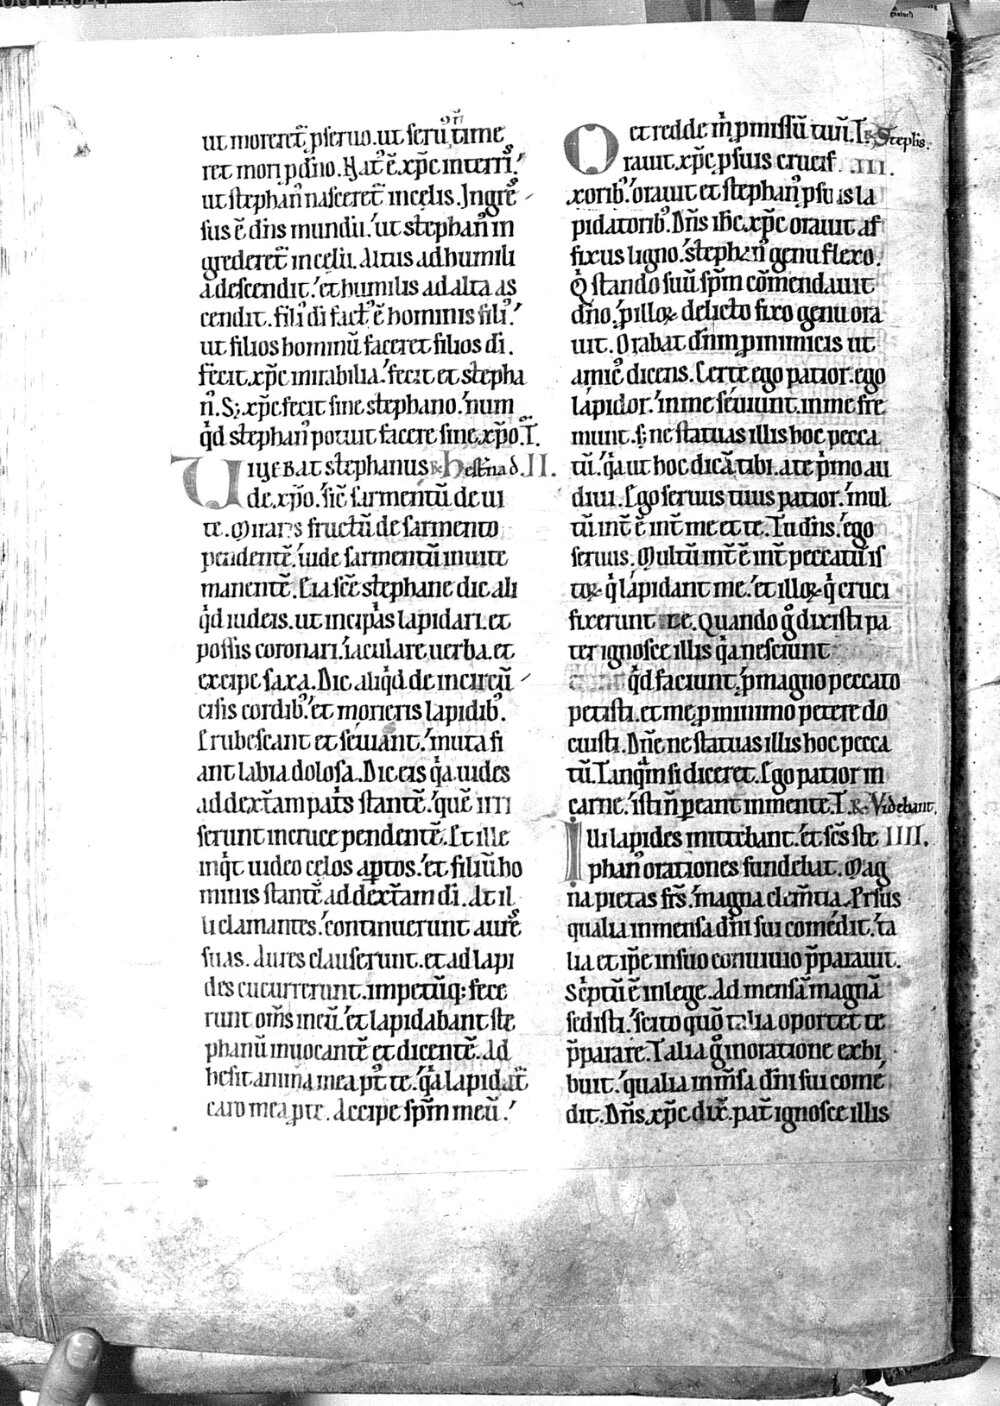 ut morereť pseruo. ut seru᷒ n̄ time
ret mori pdn̄o. Nat᷒ ē. xp̄c interris.
ut stephan᷒ nasceret᷑ incelis. Ingres
sus ē dn̄s mundū. ut stephan᷒ in
grederet᷑ in celū. Altus adhumili
a descendit. et humilis ad alta as
cendit. fili᷒ di fact᷒ ē hominis fili᷒.
ut filios hominū faceret filios di.
fecit. xp̄c mirabilia. fecit et stepha
n᷒. S; xp̄c fecit sine stephano. num
qͥd stephan᷒ potuit facere sine. xp̄o. T̄.
UIgebat stephanus R̷ Hesterna d. II.
de. xp̄o. sic̄ sarmentū de ui
te. Miraris fructū de sarmento
pendentē. uide sarmentū inuite
manentē. Eia sc̄e stephane dic ali
qͥd iudeis. ut incipiͣs lapidari. et
possis coronari. iaculare uerba. et
excipe saxa. Dic aliqͥd de incircū
cisis cordib᷒. et morieris lapidib᷒.
Erubescant et seuiant. muta fi
ant labia dolosa. Dic eis qͣa uides
ad dext̄am patͥs stantē. quē irri
serunt in cruce pendentē. Et ille
inqͥt uideo celos aptos. et filiū ho
minis stantē ad dext̄am di. At il
li clamantes. continuerunt aures
suas. Aures clauserunt. et ad lapi
des cucurrerunt. impetūq; fece
runt om̄s in eū. et lapidabant ste
phanū inuocantē et dicentē. Ad
hesit anima mea pt̄ te. qͣa lapidat᷑
caro mea p te. Accipe sp̄m meū.
et redde m̄ pmissū tuū. T̄. R̷ Stephs.
ORauit. xp̄c. p suis crucif III.
xorib᷒. orauit et stephan᷒ p suis la
pidatorib᷒. Dn̄s ih̄c. xp̄c orauit af
fixus ligno. stephan᷒ genu flexo.
Qͥ stando suū sp̄m cōmendauit
dn̄o. p illoꝝ delicto fixo genu ora
uit. Orabat dn̄m p inimicis ut
amic᷒ dicens. Certe ego patior. ego
lapidor. in me seuiunt. in me fre
munt. s; ne statuas illis hoc pecca
tū. qͣa ut hoc dicā tibi. a te pͥmo au
diui. Ego seruus tuus patior. mul
tū int̄ ē int̄ me et te. Tu dn̄s. ego
seruus. Multū int̄ ē int̄ peccatū is
toꝝ qͥ lapidant me. et illoꝝ qͥ cruci
fixerunt te. Quando gͦ dixisti pa
ter ignosce illis qͣa nesciunt
qͥd faciunt. p magno peccato
petisti. et me p minimo petere do
cuisti. Dn̄e ne statuas illis hoc pecca
tū. Tanqͣm si diceret. Ego patior in
carne. isti n̄ peant in mente. T̄. R̷ Videbant.
ILli lapides mittebant. et sc̄s ste IIII.
phan᷒ orationes fundebat. Mag
na pietas fr̄s. magna clem̄tia. Prisus
qualia in mensa dn̄i sui comedit. ta
lia et ip̄e in suo conuiuio p̄parauit.
Sc̄ptū ē in lege. Ad mensā magnā
sedisti. scito quō talia oportet te
p̄parare. Talia gͦ in oratione exhi
buit. qualia in m̄sa dn̄i sui come
dit. Dn̄s. xp̄c dix̄. pat̄ ignosce illis